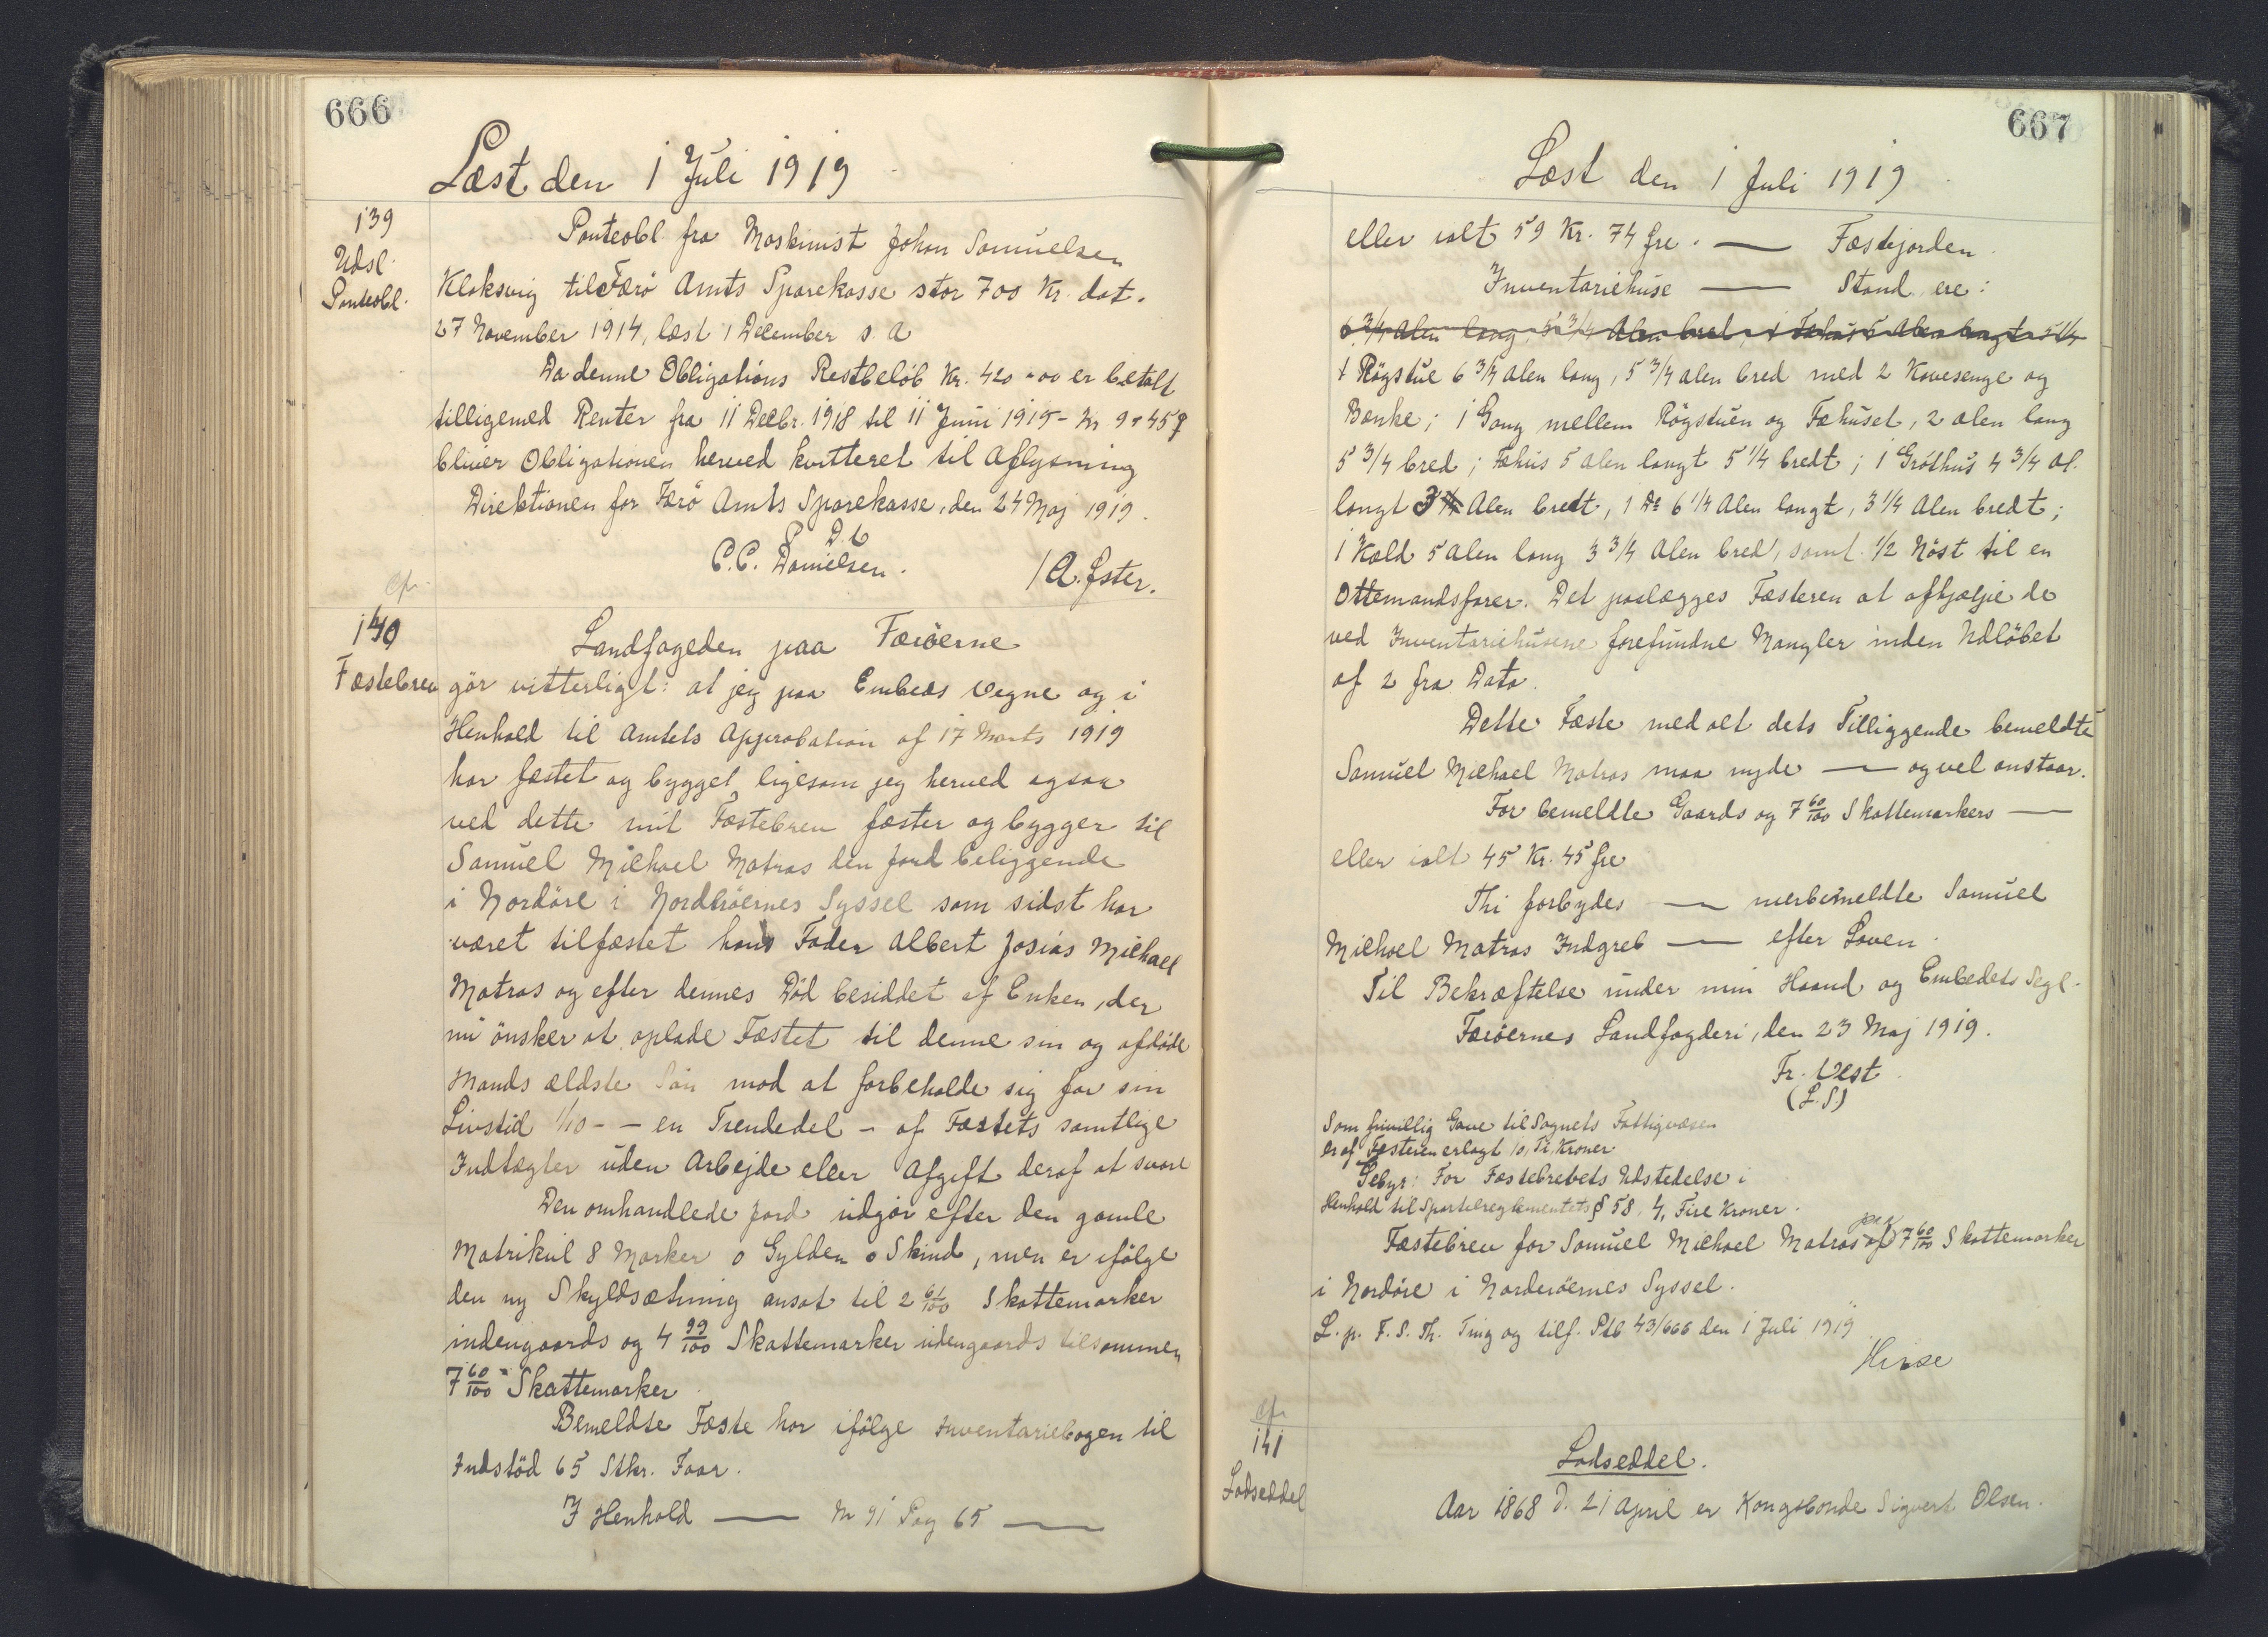 666
Læst den 1 Juli 1919
139
Udsl.
Panteobl.
Panteobl. fra Maskinist Johan Samuelsen
Klaksvig til Færö Amts Sparekasse stor 700 Kr. dat.
27 November 1914, læst 1 December s. a
Da denne Obligations Restbelöb Kr. 420 " 00 er betalt
tilligemed Renter fra 11 Decbr. 1918 til 11 Juni 1919 - Kr 9 " 45
bliver Obligationen herved kvitteret til Aflysning
Direktionen for Færö Amts Sparekasse, den 24 Maj 1919.
P. D. V
C.C. Danielsen.
/ A. Øster.
cfr
140
Fæstebrev
Landfogeden paa Færöerne
gör vitterligt: at jeg paa Embeds Vegne og i
Henhold til Amtets Approbation af 17 Marts 1919
har fæstet og bygget ligesom jeg herved ogsaa
ved dette mit Fæstebrev fæster og bygger til
Samuel Michael Matras den Jord beliggende
i Nordöre i Norderöernes Syssel som sidst har
været tilfæstet hans Fader Albert Josias Michael
Matras og efter dennes Död besiddet af Enken, der
nu önsker at oplade Fæstet til denne sin og afdöde
Mands ældste Sön mod at forbeholde sig for sin
Livstid 1/10 - - en Tiendedel - af Fæstets samtlige
Indtægter uden Arbejde eller Afgift deraf at svare
Den omhandlede Jord udgör efter den gamle
Matrikul 8 Marker 0 Gylden 0 Skind, men er ifölge
den ny Skyldsætning ansat til 2 61/100 Skattemarker
indengaards og 4 99/100 Skattemarker udengaards tilsammen
7 60/100 Skattemarker
Bemeldte Fæste har ifölge Inventariebogen til
Indstöd 65 Stkr. Faar.
I Henhold — Nr 91 Pag 65 —
667
Læst den 1 Juli 1919
eller ialt 59 Kr. 74 Øre. — Fæstejorden.
Inventariehuse — Stand, ere:
6 3/4 Alen lang, 5 3/4 Alen bred 1 Fæhus 5 Alen langt 5 1/4
1 Rögstue 6 3/4 alen lang, 5 3/4 alen bred med 2 Kovesenge og
Bænke; 1 Gang mellem Rögstuen og Fæhuset, 2 alen lang
5 3/4 bred; Fæhus 5 alen langt 5 1/4 bredt; 1 Gróthus 4 3/4 Al.
langt 3 1/4 Alen bredt, 1 Do 6 1/4 Alen langt, 3 1/4 Alen bredt;
1 Kald 5 Alen lang 3 3/4 Alen bred, samt 1/2 Nöst til en
Ottemandsfarer. Det paalægges Fæsteren at afhjælpe de
ved Inventariehusene forefundne Mangler inden Udlöbet
af 2 fra Dato.
Dette Fæste med alt dets Tilliggende bemeldte
Samuel Michael Matras maa nyde — og vel anstaar.
For bemeldte Gaards og 7 60/100 Skattemarkers —
eller ialt 45 Kr. 45 Øre
Thi forbydes — merbemeldte Samuel
Michael Matras Indgreb — efter Loven.
Til Bekræftelse under min Haand og Embedets Segl.
Færöernes Landfogderi, den 23 Maj 1919.
Fr. Vest
(L.S.)
Som frivillig Gave til Sognets Fattigvæsen
er af Fæsteren erlagt 10, Ti, Kroner
Gebyr: For Fæstebrevets Udstedelse i
Henhold til Sportelreglementets § 58. 4, Fire Kroner.
Fæstebrev for Samuel Michael Matras af paa 7 60/100 Skattemarker
i Nordöre i Norderöernes Syssel.
L. p. F. S. Th. Ting og tilf. Ptb 43/666 den 1 Juli 1919
cfr
141
Lodseddel
Lodseddel.
Aar 1868 d. 21 April er Kongsbonde Sigvert Olsen.